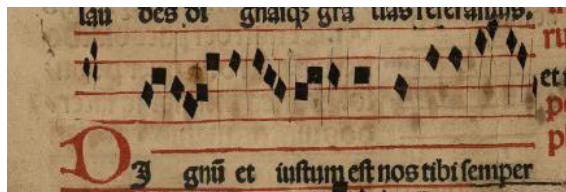 lau des di gnasqȝ gra tias referamus.
DIgnū et iustum est nos tibi semper